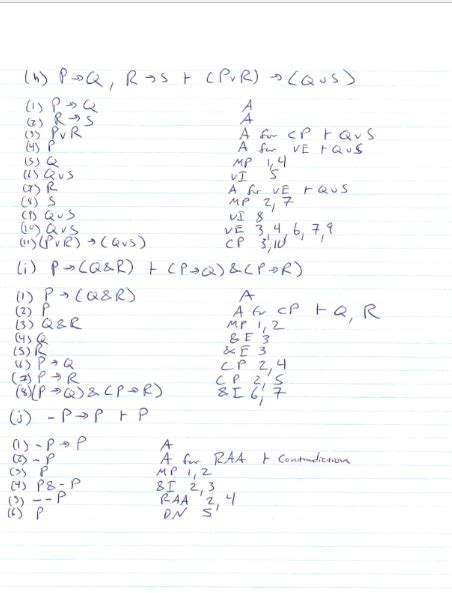 (h) P→Q, R→S ⊢ (PvR)→(QvS)
(1) P→Q A
(2) R→S A
(3) PvR A for CP ⊢ QvS
(4) P A for vE ⊢ QvS
(5) Q MP 1,4
(6) QvS vI 5
(7) R A for vE ⊢ QvS
(8) S MP 2,7
(9) QvS vI 8
(10) QvS vE 3,4,6,7,9
(11) (PvR)→(QvS) CP 3,10
(i) P→(Q&R) ⊢ (P→Q)&(P→R)
(1) P→(Q&R) A
(2) P A for CP ⊢ Q, R
(3) Q&R MP 1,2
(4) Q &E 3
(5) R &E 3
(6) P→Q CP 2,4
(7) P→R CP 2,5
(8) (P→Q)&(P→R) &I 6,7
(j) -P→P ⊢ P
(1) -P→P A
(2) -P A for RAA ⊢ Contradiction
(3) P MP 1,2
(4) P&-P &I 2,3
(5) --P RAA 2,4
(6) P DN 5